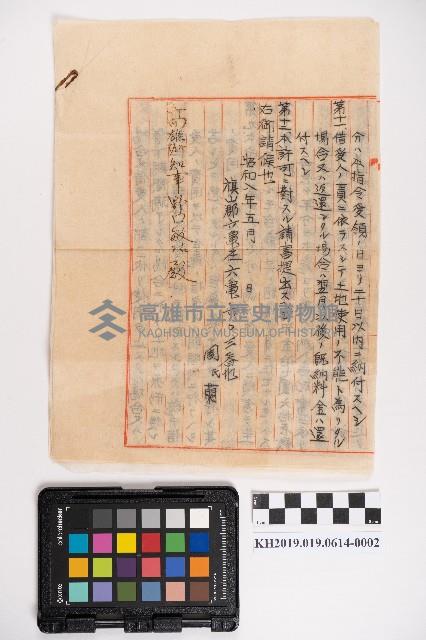 分ハ本指令受領ノ日ヨリ二十日以内ニ納付スヘシ
第十一借受人ノ責ニ依ラスシテ土地使用ノ不能ト為リタル
場合又ハ返還シタル場合ハ翌月以後ノ既納料金ハ還
付スヘシ
第十二本許可ニ対スル請書提出スヘシ
右御請候也
昭和八年五月 日
旗山郡六亀庄六亀
高雄州知事野口敏治殿
高雄市立歷史博物館
KAOHSIUNG MUSEUM OF HISTORY
KH2019.019.0614-0002